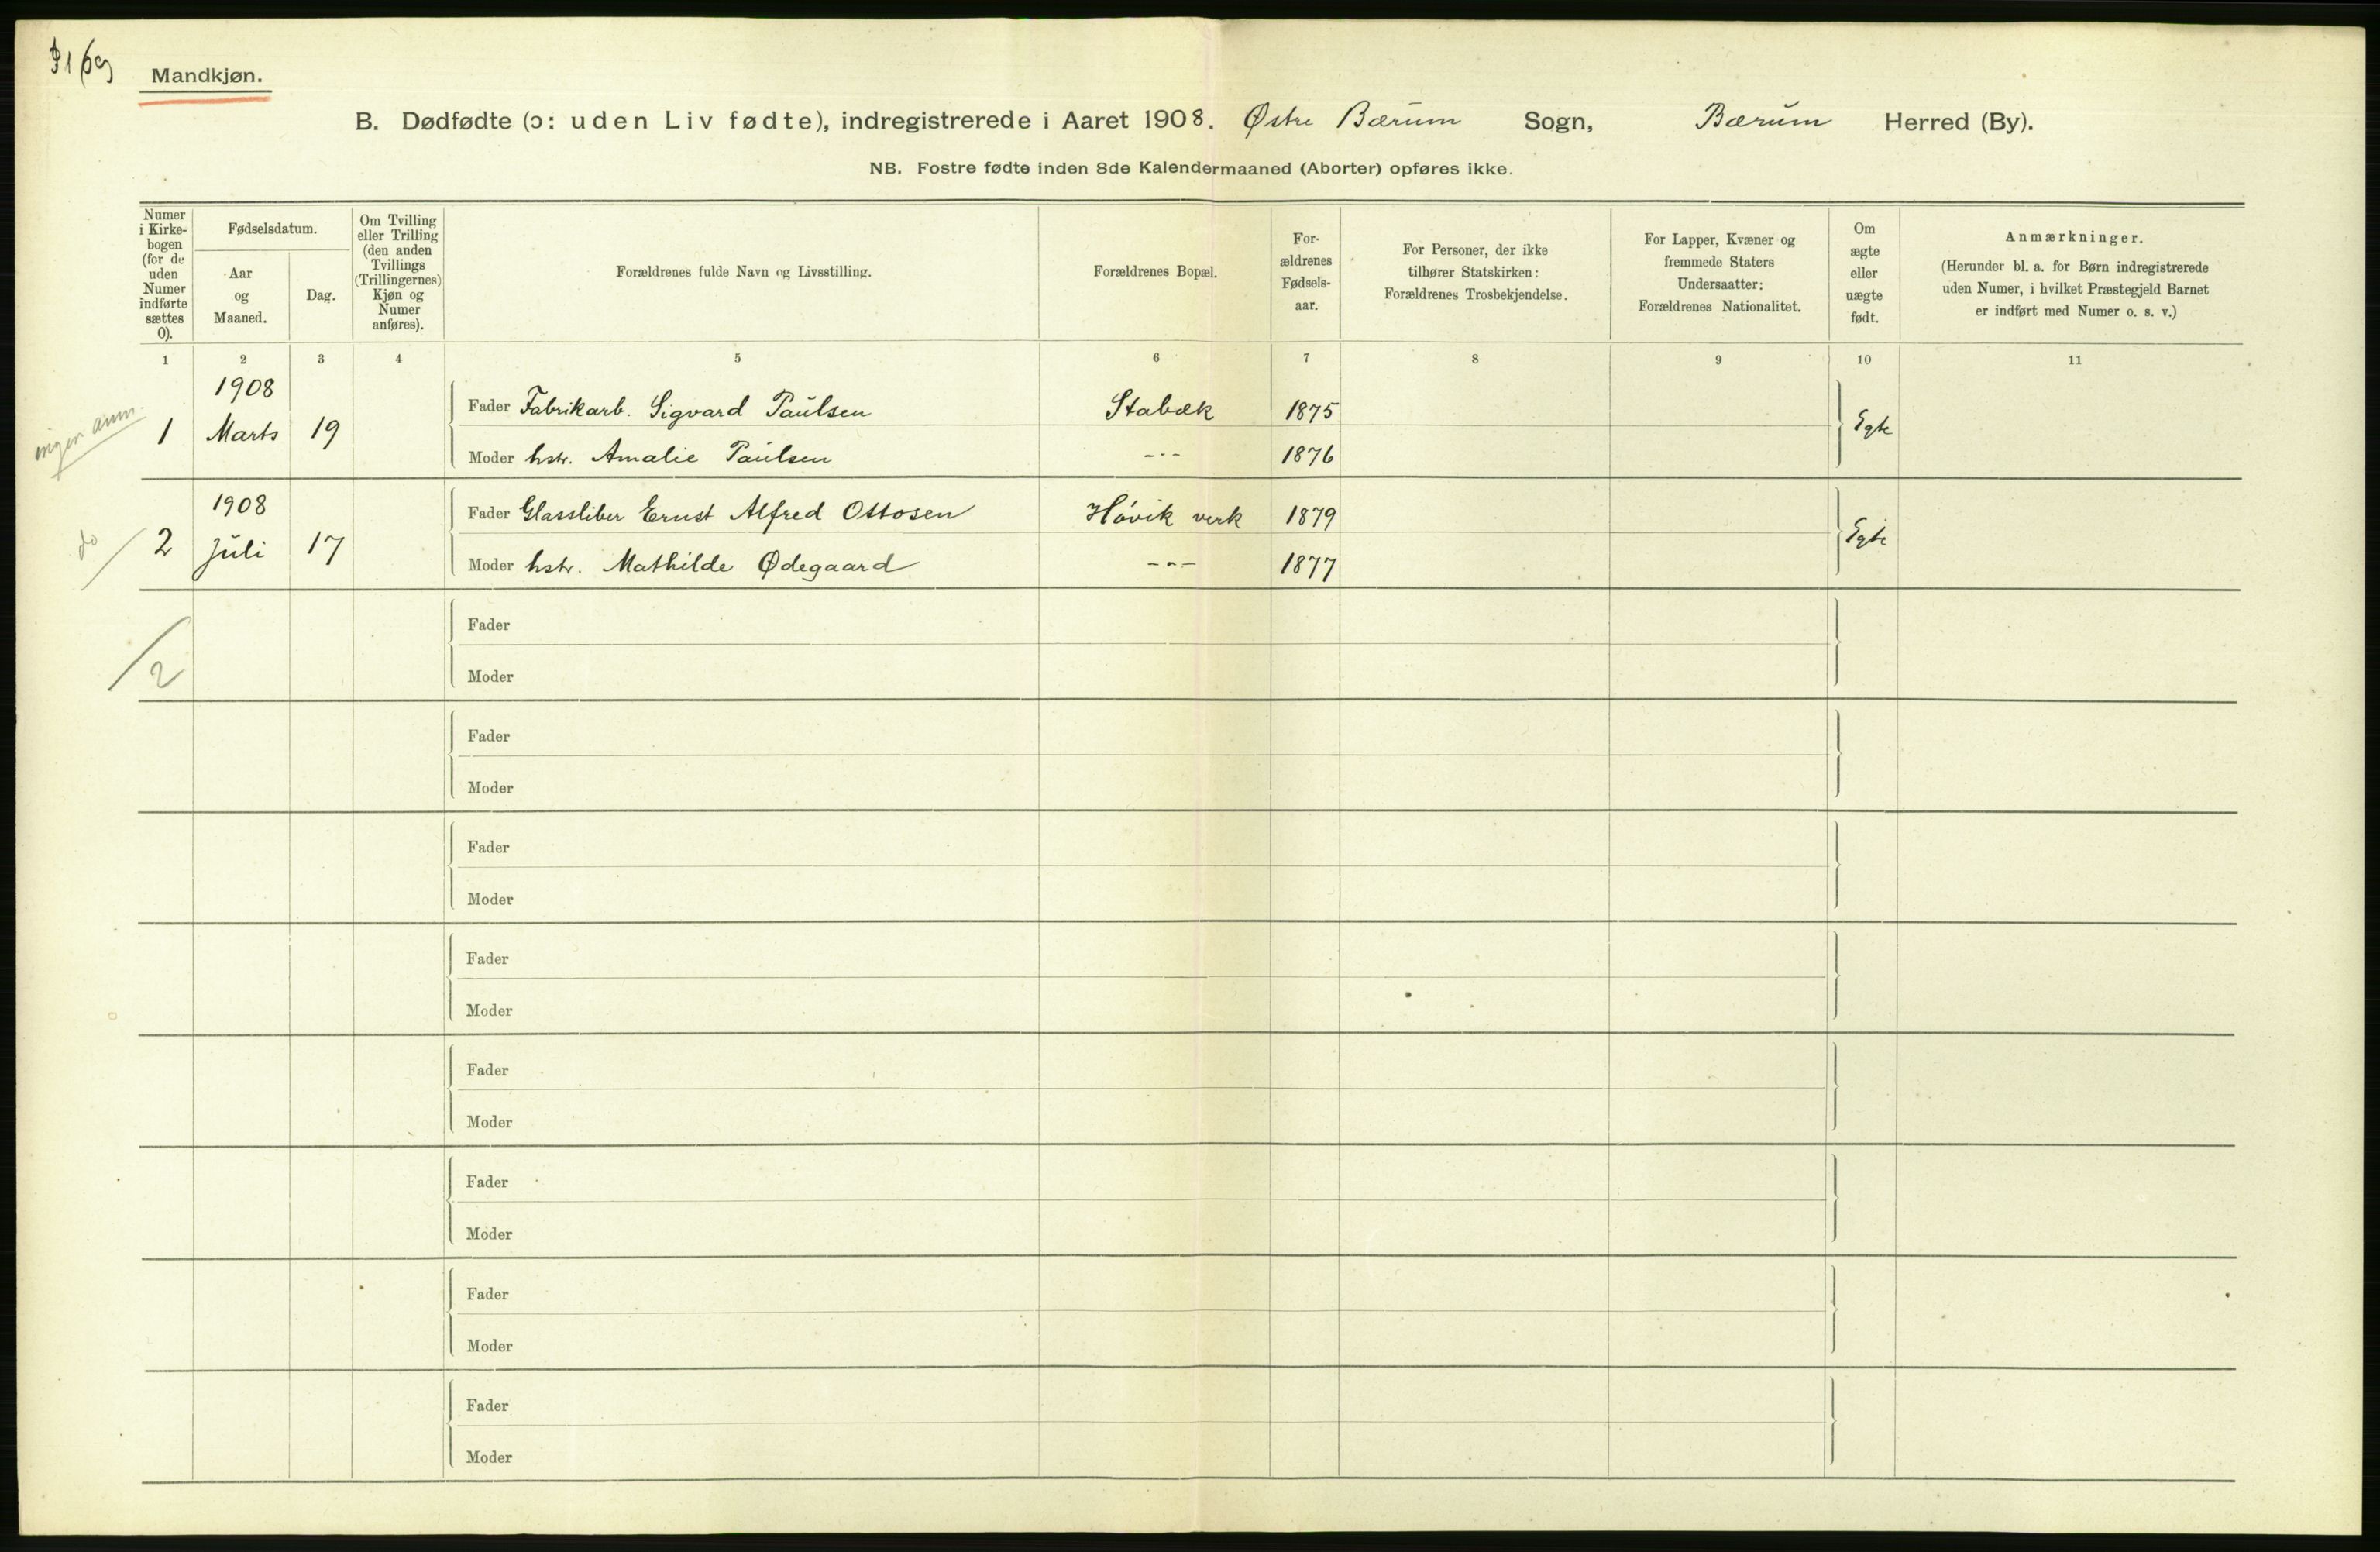 Mandkjøn.
B. Dødfødte (ɔ: uden Liv fødte), indregistrerede i Aaret 1908. Østre Bærum Sogn, Bærum Herred (By).
NB. Fostre fødte inden 8de Kalendermaaned (Aborter) opføres ikke.
Numer
i Kirke-
bogen
(for de
uden
Numer
indførte
sættes
0).
Fødselsdatum.
Aar
og
Maaned.
Dag.
Om Tvilling
eller Trilling
(den anden
Tvillings
(Trillingernes)
Kjøn og
Numer
anføres).
Forældrenes fulde Navn og Livsstilling.
Forældrenes Bopæl.
For-
ældrenes
Fødsels-
aar.
For Personer, der ikke
tilhører Statskirken:
Forældrenes Trosbekjendelse.
For Lapper, Kvæner og
fremmede Staters
Undersaatter:
Forældrenes Nationalitet.
Om
ægte
eller
uægte
født.
Anmærkninger.
(Herunder bl. a. for Børn indregistrerede
uden Numer, i hvilket Præstegjeld Barnet
er indført med Numer o. s. v.)
1 2 3 4 5 6 7 8 9 10 11
ingen anm.
1908
1 Marts 19 Fader Fabrikarb. Sigvard Paulsen Stabæk 1875 Egte
Moder hstr. Amalie Paulsen -"- 1876
1908
do 2 Juli 17 Fader Glassliber Ernst Alfred Ottosen Høvik verk 1879 Egte
Moder hstr. Mathilde Ødegaard -"- 1877
Fader
2
Moder
Fader
Moder
Fader
Moder
Fader
Moder
Fader
Moder
Fader
Moder
Fader
Moder
Fader
Moder